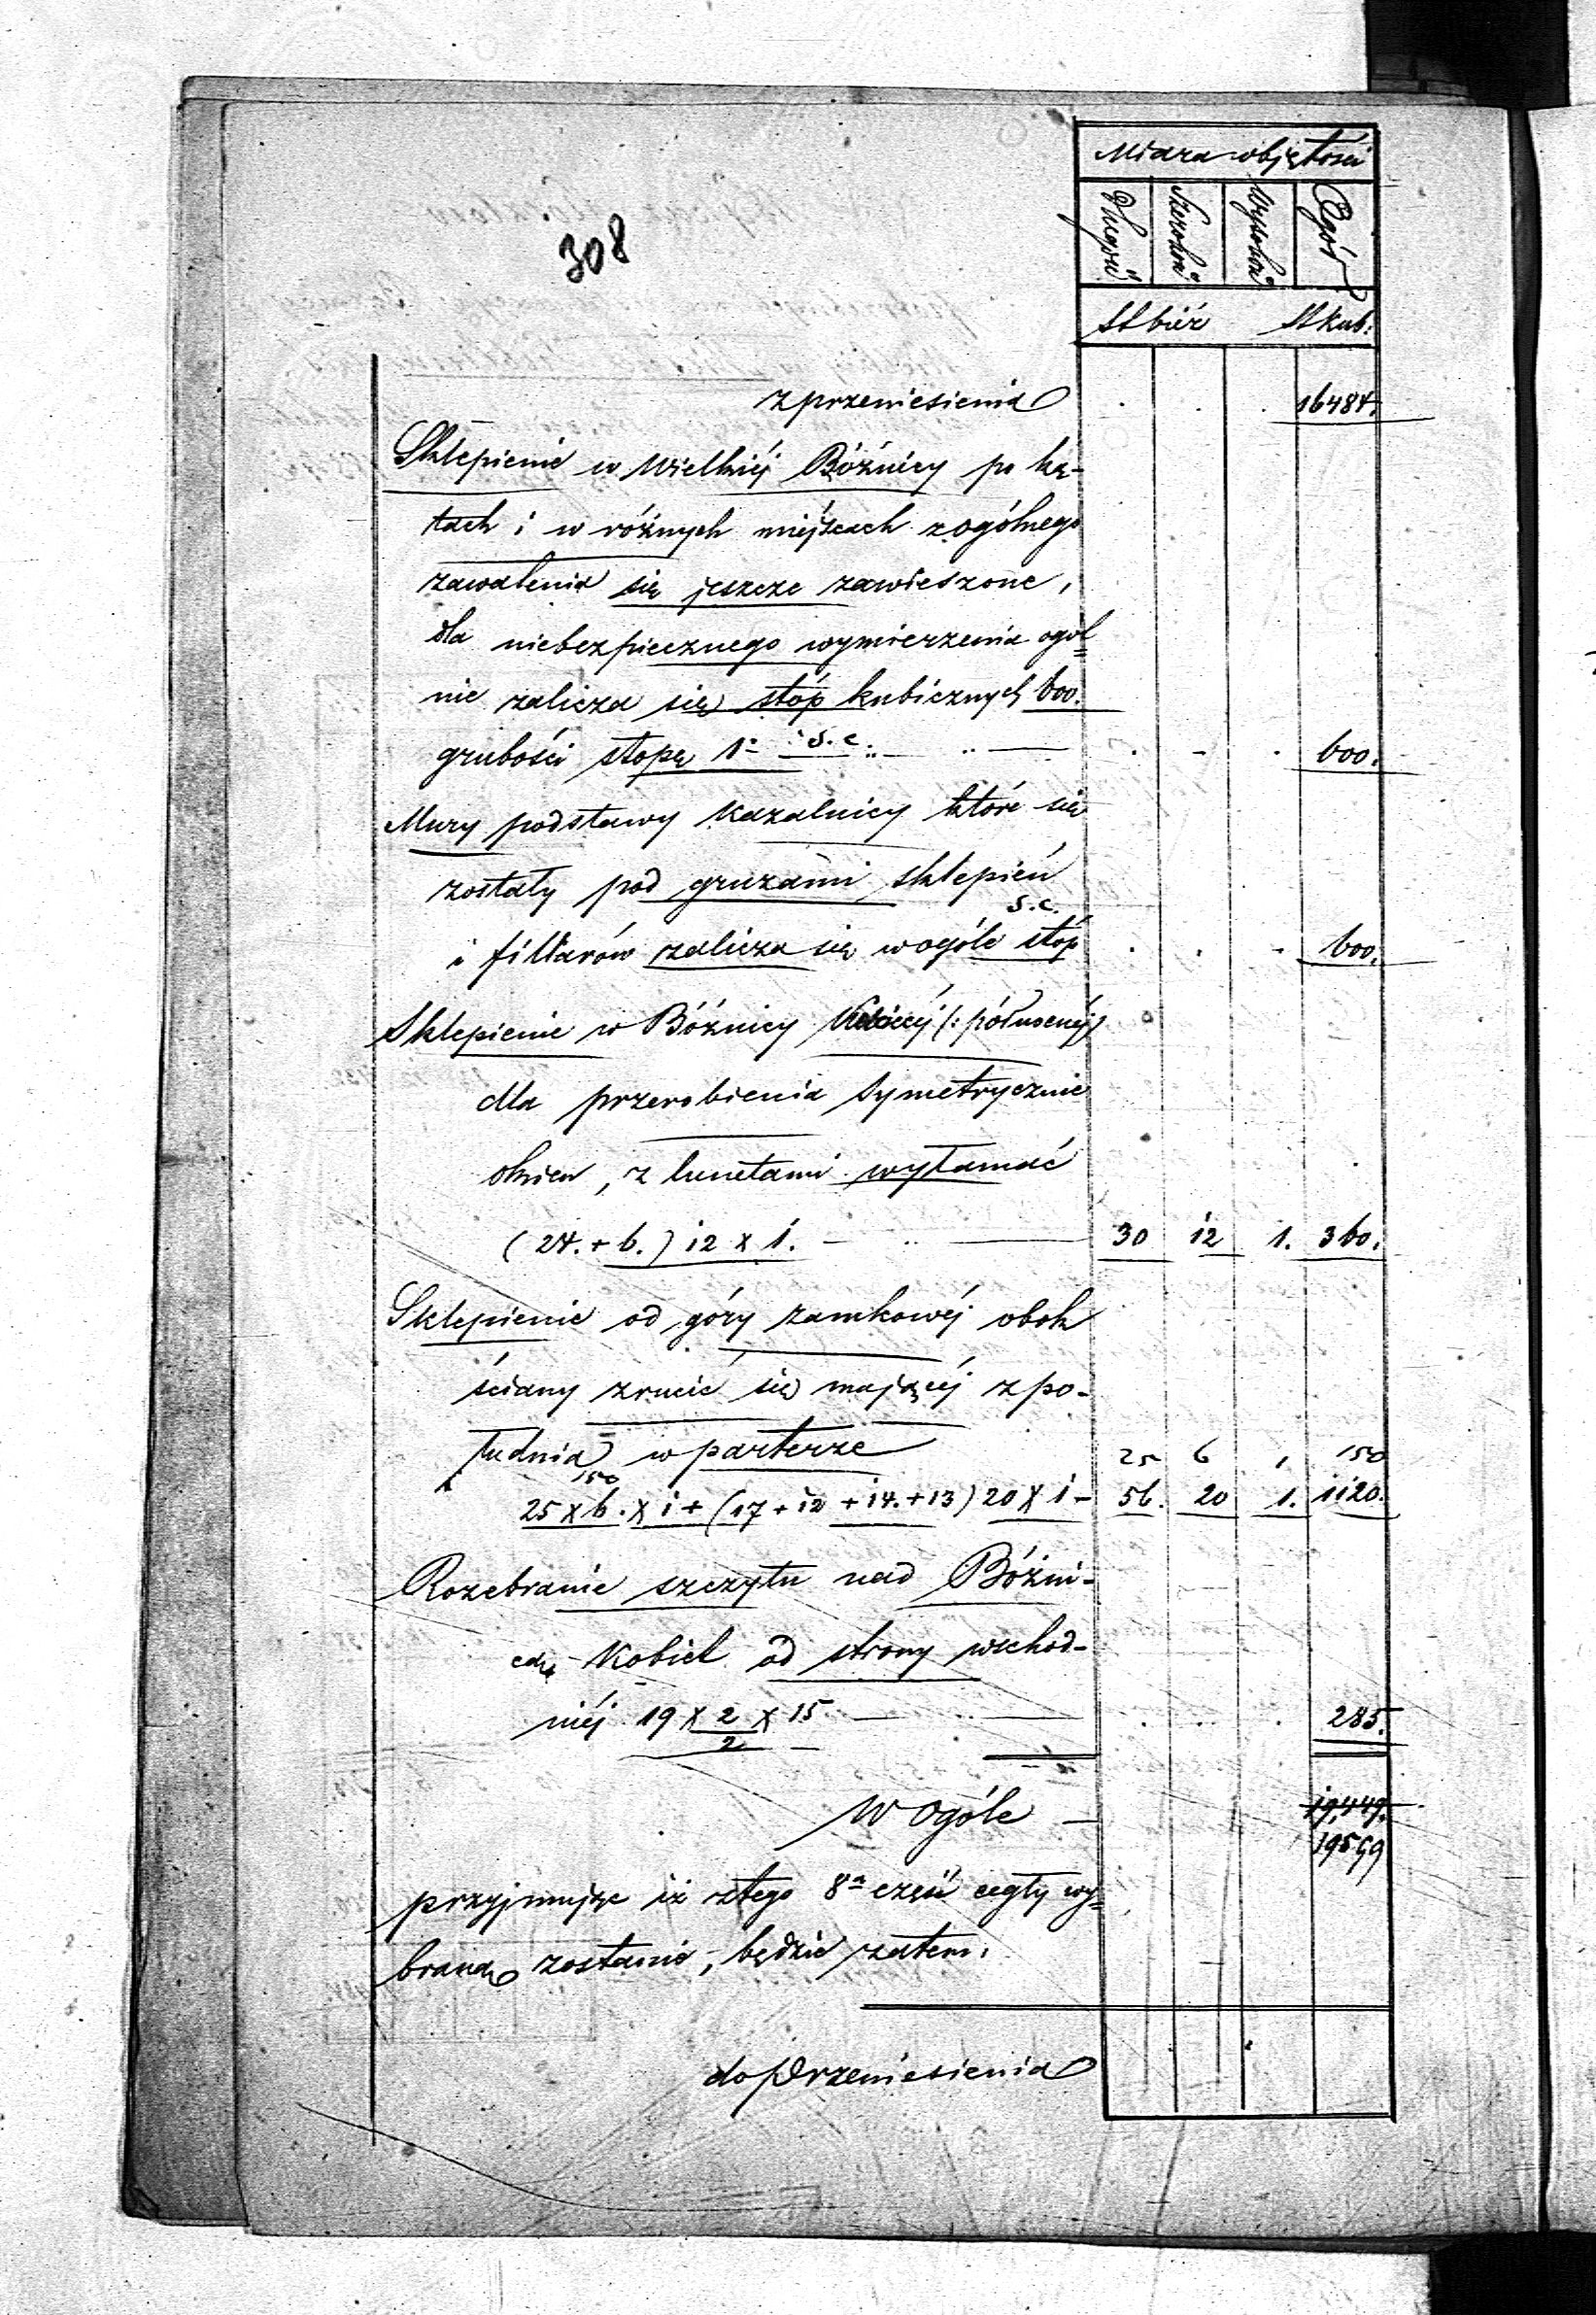 308
Miara objętości
Długość Szerokość Wysokość Ogół
St bież St kub:
z przeniesienia . . . 16484.
Sklepienie w Wielkiéj Bóźnicy po ką-
tach i w różnych miéjscach z ogólnego
zawalenia się jeszcze zawieszone,
dla niebezpiecznego wymierzenia ogól=
nie zalicza się stóp kubicznych 600.
grubości stopę 1 s.c. . - . 600.
Mury podstawy Kazalnicy które się
zostały pod gruzami sklepień
s.c.
i fillarów zalicza się w ogóle stóp . . - 600.
Sklepienie w Bóźnicy
dla przerobienia Symetrycznie
okien, z lunetami wyłamać
(24. + 6.) 12 x 1. — 30 12 1. 360.
Sklepienie od góry zamkowéj obok
ściany zrucić się mającéj z po-
łudnia w parterze 25 6 1 150
150
25 x 6. x 1 + (17 + 12 + 14. + 13) 20 x 1 - 56. 20 1. 1120.
Rozebranie szczytu nad Bóźni-
cą Kobiet od strony wschod-
niéj 19 x 2/2 x 15 — . . . 285.
W ogóle — 19,449.
19599
przyjmując iż z tego 8a część cegły wy=
braną zostanie, będzie zatem.
do przeniesienia